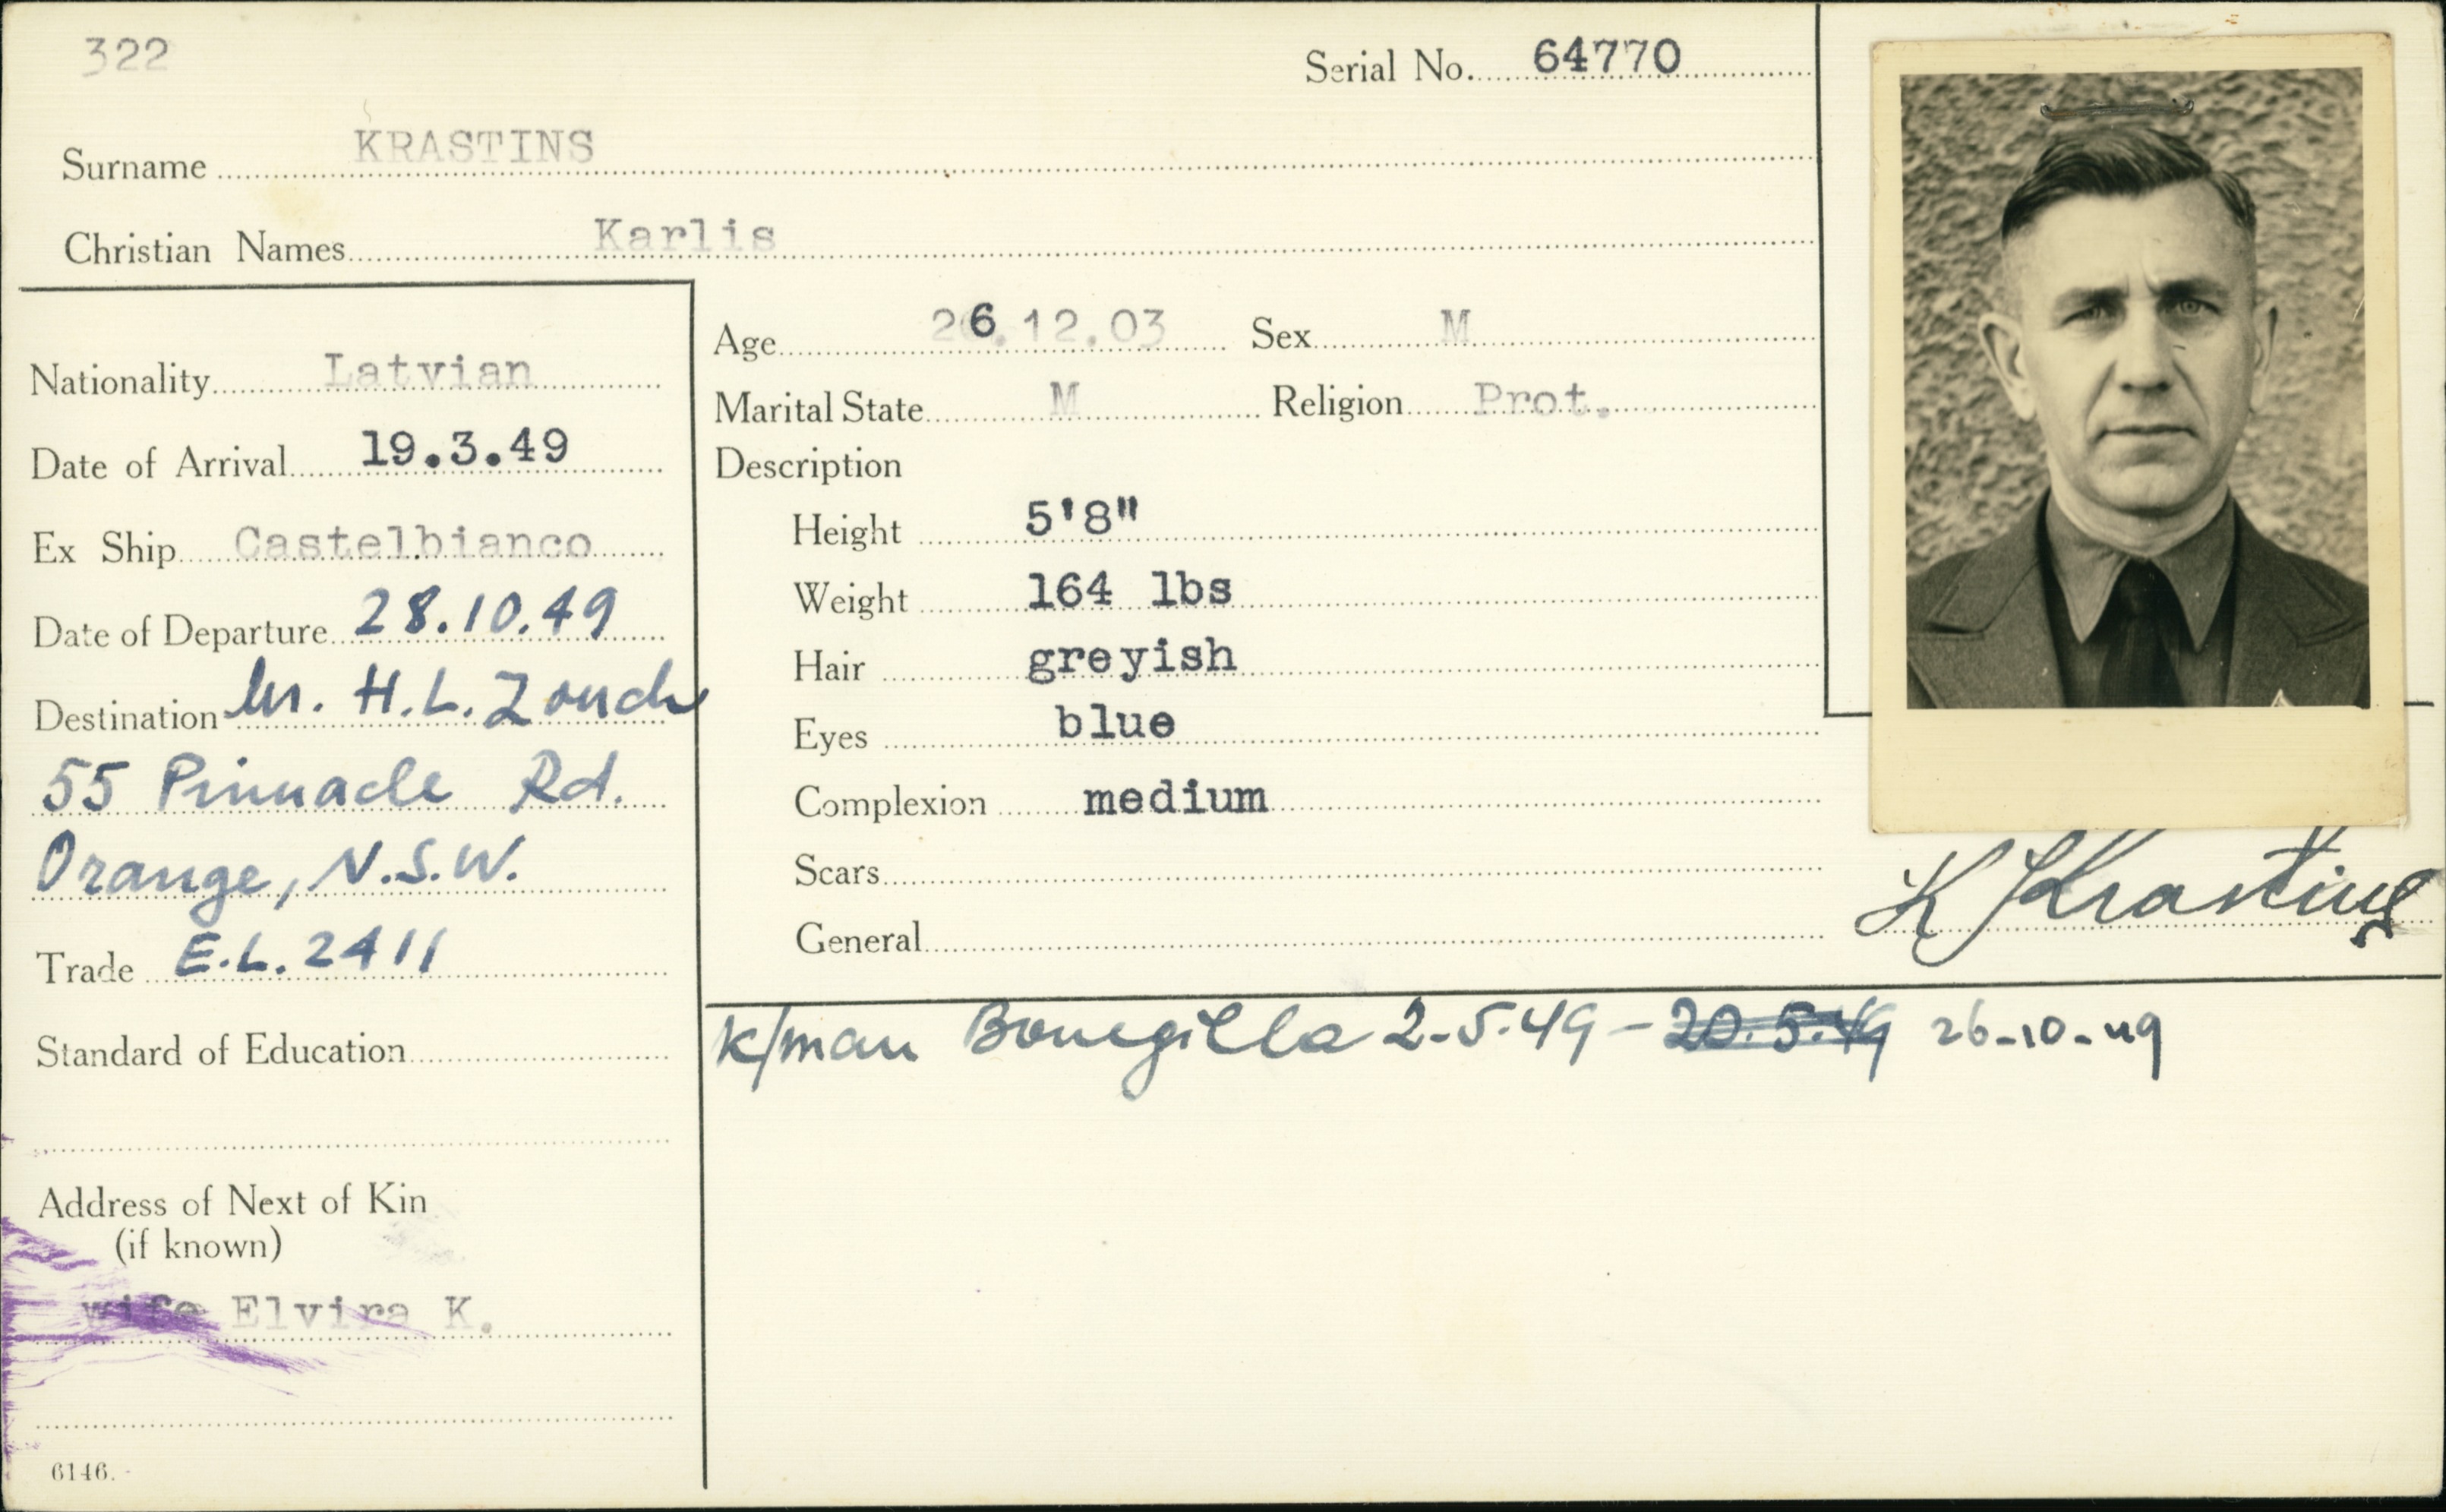 322
Serial No. 64770
Surname KRASTINS
Christian Names Karlis
Nationality Latvian
Date of Arrival 19.3.49
Ex Ship Castelbianco
Date of Departure 28.10.49
Destination Mr. H.L. Zouch
55 Pinnacle Rd.
Orange, N.S.W.
Trade E.L. 2411
Standard of Education
Address of Next of Kin
(if known)
wife Elvira K.
6146.-
Age 26.12.03 Sex M
Marital State M Religion Prot.
Description
Height 5'8"
Weight 164 lbs
Hair greyish
Eyes blue
Complexion medium
Scars
General
K Krastins
K/man Bonegilla 2-5.49 – 20.5.49 26-10-49